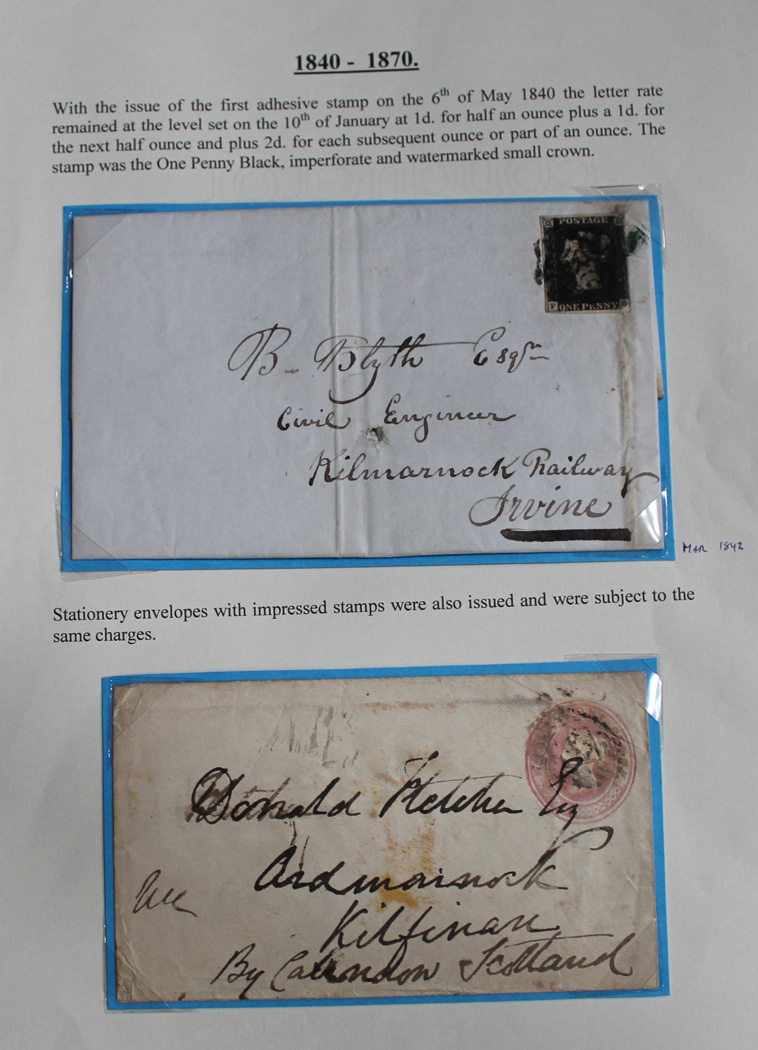 1840 - 1870.
With the issue of the first adhesive stamp on the 6th of May 1840 the letter rate
remained at the level set on the 10th of January at 1d. for half an ounce plus a 1d. for
the next half ounce and plus 2d. for each subsequent ounce or part of an ounce. The
stamp was the One Penny Black, imperforate and watermarked small crown.
POSTAGE
ONE PENNY
B. Blyth Esqr
Civil Engineer
Kilmarnock Railway
Irvine
MAR 1842
Stationery envelopes with impressed stamps were also issued and were subject to the
same charges.
Donald Fletcher Esq
Ardmarnock
Kilfinan
By Cairndow Scotland